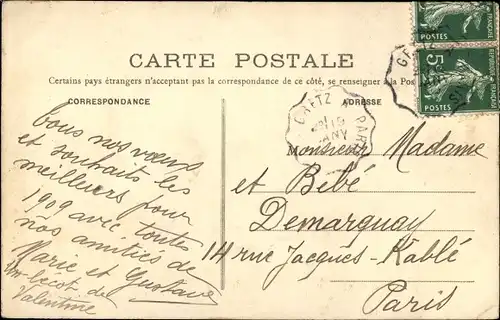 CARTE POSTALE
Certains pays étrangers n'acceptent pas la correspondance de ce côté, se renseigner à la Poste
CORRESPONDANCE
ADRESSE
Tous nos vœux
et souhaits les
meilleurs pour
1909 avec toutes
nos amitiés de
Marie et Gustave
de
Valentine
Monsieur Madame
et Bébé
Demarquay
14 rue Jacques-Kablé
Paris
GRETZ A PARIS
GRETZ
POSTES
5
POSTES